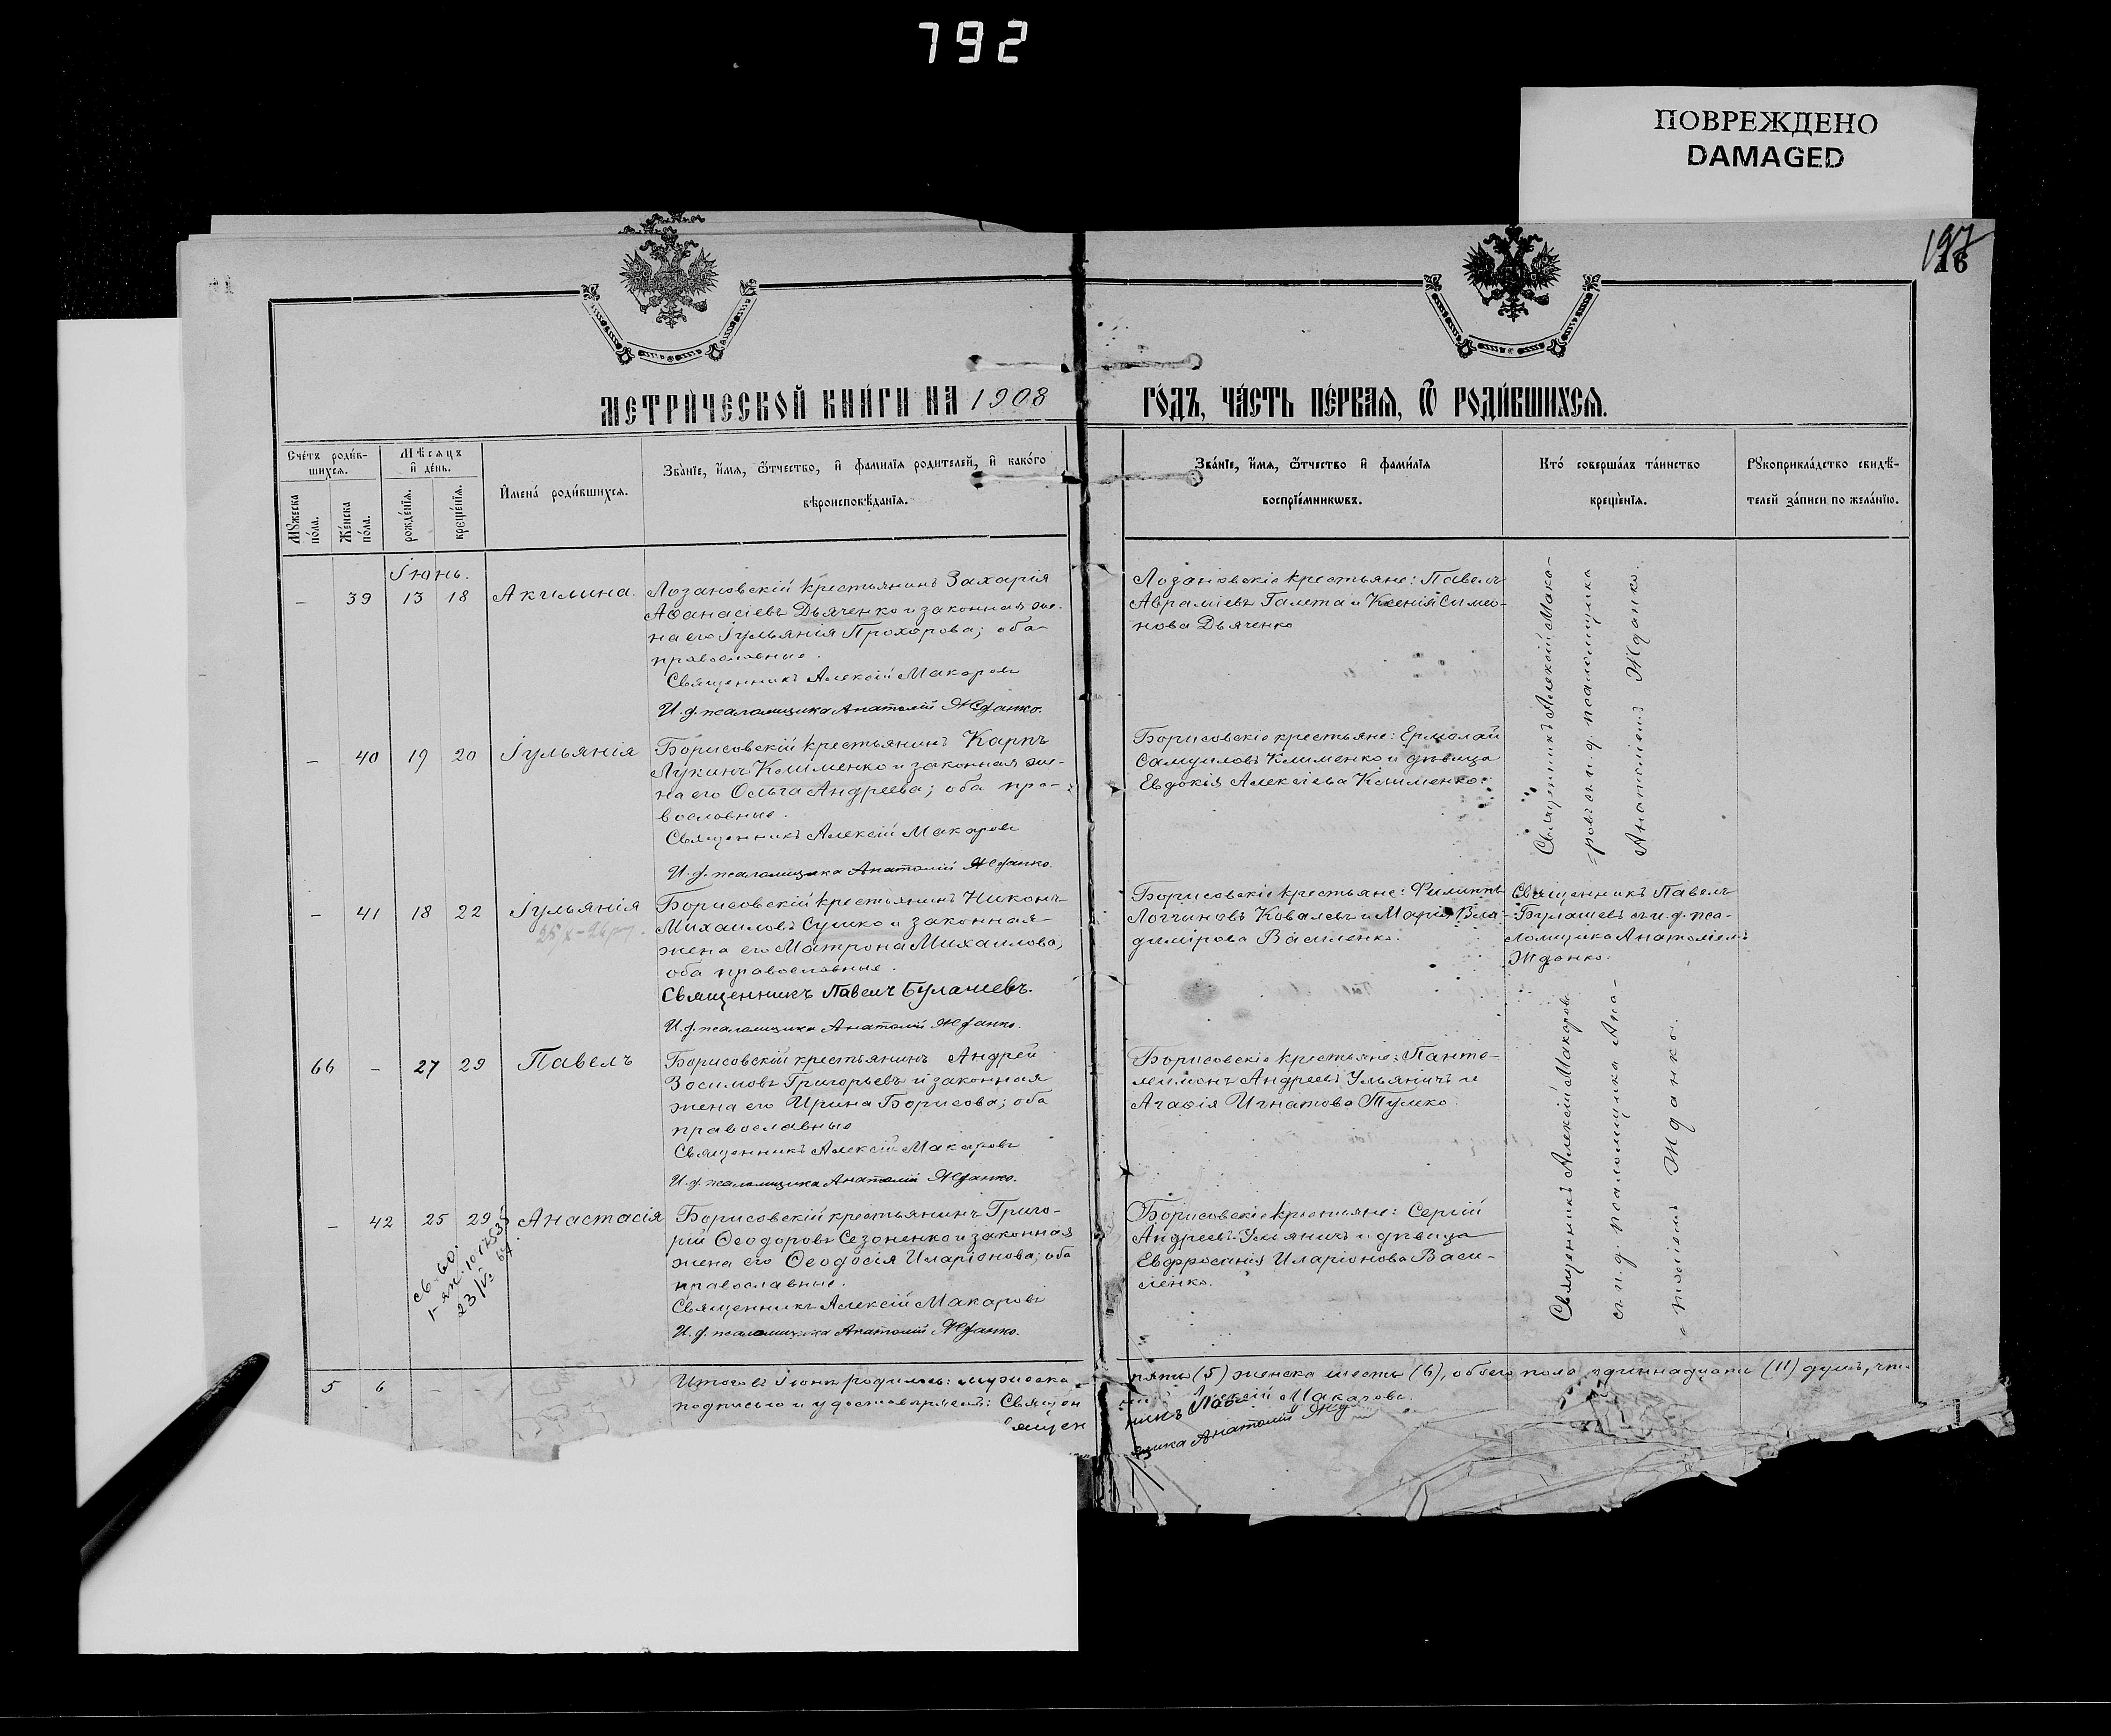 792
ПОВРЕЖДЕНО
DAMAGED
197
16
МЕТРИ́ЧЕСКОЙ КНИ́ГИ НА 1908
ГО́ДЪ, ЧА́СТЬ ПЕ́РВАѦ, Ѿ РОДИ́ВШИХСѦ.
Сче́тъ роди́в-
шихсѧ.
Мѣ́сѧцъ
и҆ де́нь.
И҆мена́ роди́вшихсѧ.
Зва́нїе, и҆́мѧ, ѻ҆́тчество, и҆ фами́лїѧ роди́телей, и҆ како́гѡ
вѣроисповѣ́данїѧ.
Мꙋ́жеска
по́ла.
Же́нска
по́ла.
рожде́нїѧ.
креще́нїѧ.
Зва́нїе, и҆́мѧ, ѻ҆́тчество и҆ фами́лїѧ
воспрїе́мникѡвъ.
Кто̀ соверша́лъ та́инство
креще́нїѧ.
Рꙋкоприкла́дство свидѣ́-
телей за́писи по жела́нїю.
Іюнь.
– 39 13 18 Акилина.
Лозановскій крестьянинъ Захарія
Аѳанасіевъ Дьяченко и законная же-
на его Іульянія Прохорова; оба
православные.
Священникъ Алексій Макаровъ
И. д. псаломщика Анатолій Жданко.
Лозановскіе крестьяне: Павелъ
Авраміевъ Галета и Ксенія Симео-
нова Дьяченко
Священникъ Алексій Мака-
ровъ съ и. д. псаломщика
Анатоліемъ Жданко.
– 40 19 20 Іульянія
Борисовскій крестьянинъ Карпъ
Лукинъ Клименко и законная же-
на его Ольга Андреева; оба пра-
вославные.
Священникъ Алексій Макаровъ
И. д. псаломщика Анатолій Жданко.
Борисовскіе крестьяне: Ермолай
Самуиловъ Клименко и дѣвица
Евдокія Алексіева Клименко.
– 41 18 22 Іульянія
Борисовскій крестьянинъ Никонъ
Михаиловъ Сушко и законная
жена его Матрона Михаилова,
оба православные.
Священникъ Павелъ Булашевъ.
И. д. псаломщика Анатолій Жданко.
Борисовскіе крестьяне: Филиппъ
Логгиновъ Ковалевъ и Марія Вла-
димірова Василенко.
Священникъ Павелъ
Булашевъ съ и. д. пса-
ломщика Анатоліемъ
Жданко.
66 – 27 29 Павелъ
Борисовскій крестьянинъ Андрей
Зосимовъ Григорьевъ и законная
жена его Ирина Борисова; оба
православные
Священникъ Алексій Макаровъ
И. д. псаломщика Анатолій Жданко.
Борисовскіе крестьяне: Панте-
леимонъ Андреевъ Ульяничъ и
Агаѳія Игнатова Тумко
Священникъ Алексій Макаровъ
съ и. д. псаломщика Ана-
толіемъ Жданко.
– 42 25 29 Анастасія
Борисовскій крестьянинъ Григо-
рій Ѳеодоровъ Сезоненко и законная
жена его Ѳеодосія Иларіонова; оба
православные.
Священникъ Алексій Макаровъ
И. д. псаломщика Анатолій Жданко.
Борисовскіе крестьяне: Сергій
Андреевъ Ульяничъ и дѣвица
Евфросинія Иларіонова Васи-
ленко.
5 6 – –
Итого въ Іюнѣ родилось: мужеска
пять (5) женска шесть (6), обоего пола одиннадцати (11) душъ, что
подписью и удостовѣряемъ: Священ
никъ Алексій Макаровъ.
щика Анатолій